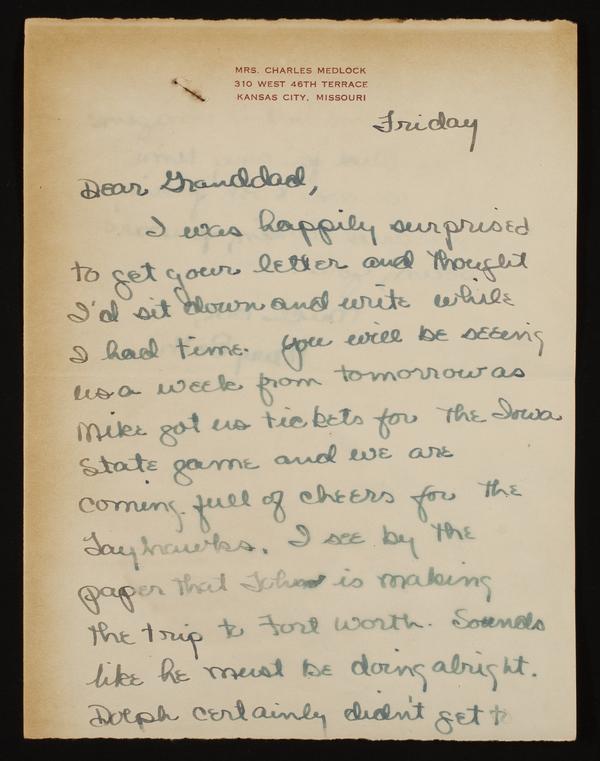 MRS. CHARLES MEDLOCK
310 WEST 46TH TERRACE
KANSAS CITY, MISSOURI
Friday
Dear Granddad,
I was happily surprised
to get your letter and thought
I'd sit down and write while
I had time. You will be seeing
us a week from tomorrow as
Mike got us tickets for the Iowa
State game and we are
coming full of cheers for the
Jayhawks. I see by the
paper that John is making
the trip to Fort Worth. Sounds
like he must be doing alright.
Dolph certainly didn't get t